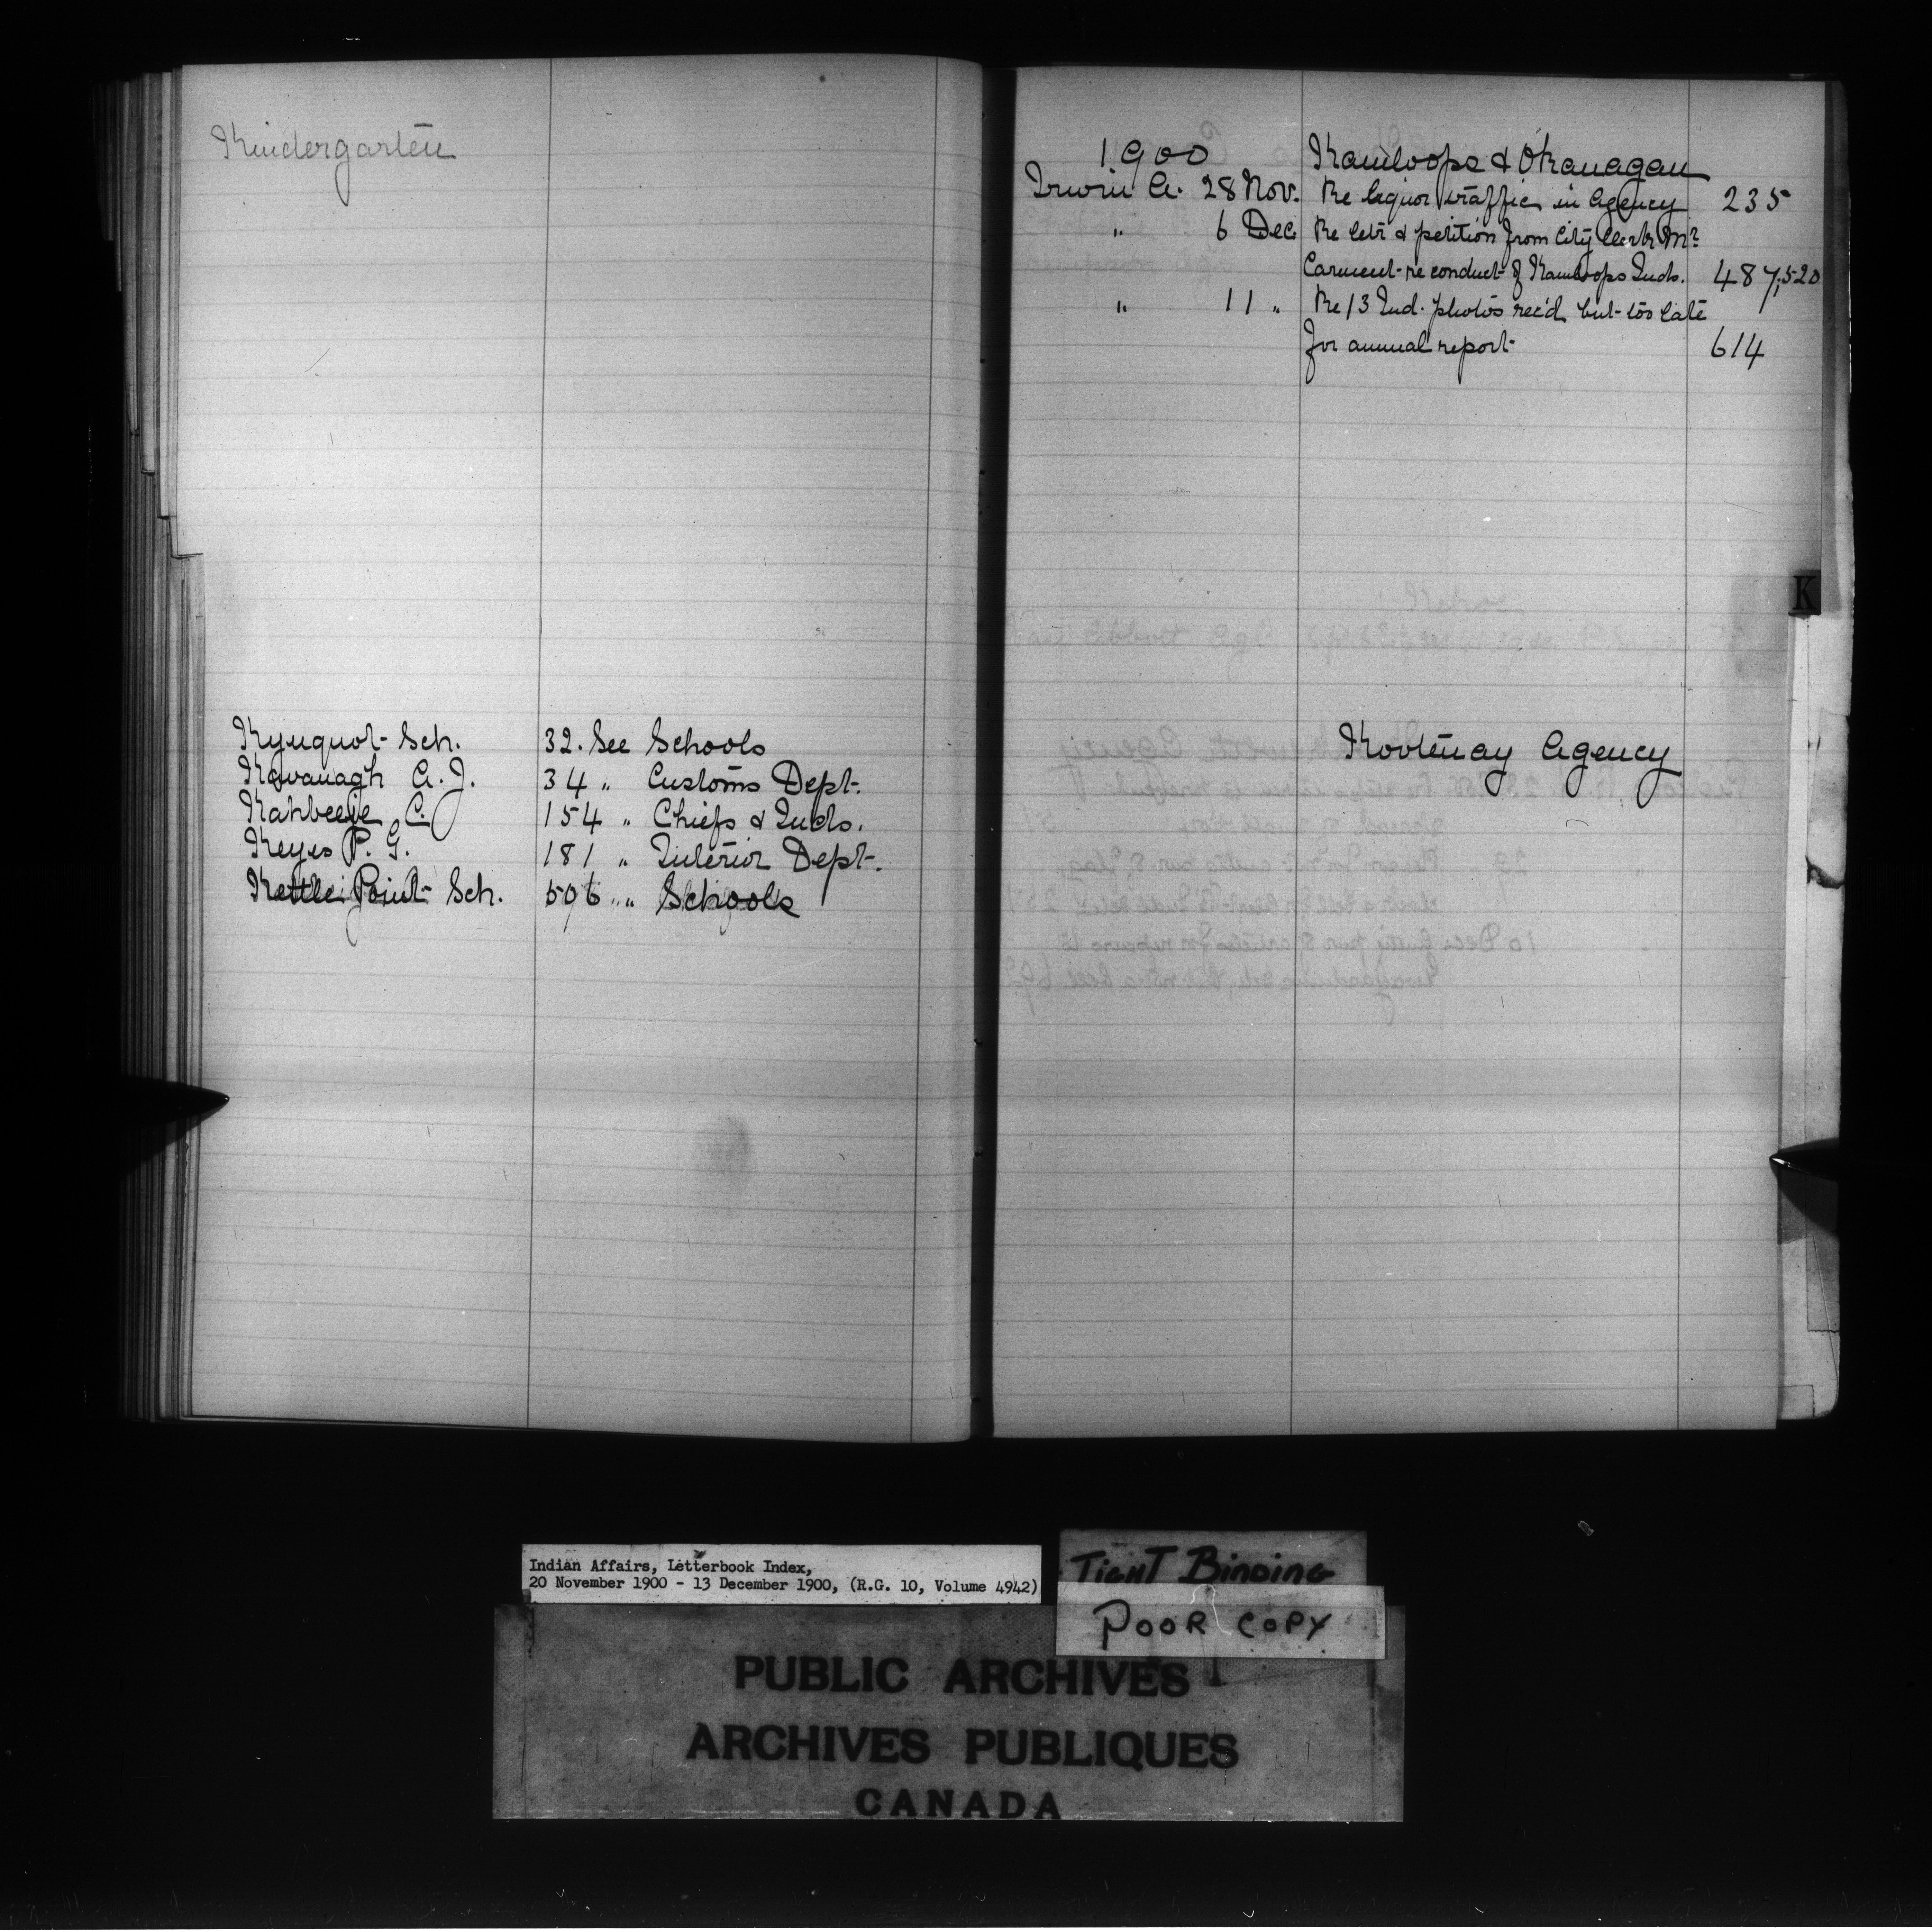 Kindergarten
Kyuquot Sch. 32. See Schools
Kavanagh A. J. 34 " Customs Dept.
Kahbeeje C. 154 " Chiefs & Inds.
Keyes P. G. 181 " Interior Dept.
Kettle Point Sch. 506 " " Schools
1900 Kamloops & Okanagan
Irwin A. 28 Nov. Re liquor traffic in Agency 235
" 6 Dec. Re letr & petition from City Clerk Mr
Carment re conduct of Kamloops Inds. 487,520
" 11 " Re 13 Ind. photos rec'd but too late
for annual report 614
K
Kootenay Agency
Indian Affairs, Letterbook Index,
20 November 1900 - 13 December 1900, (R.G. 10, Volume 4942)
TIGHT BINDING
POOR COPY
PUBLIC ARCHIVES
ARCHIVES PUBLIQUES
CANADA